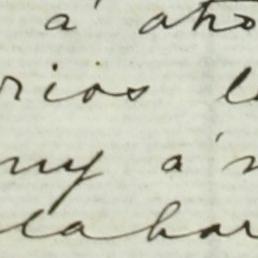 á aho
rios l
my á n
labar